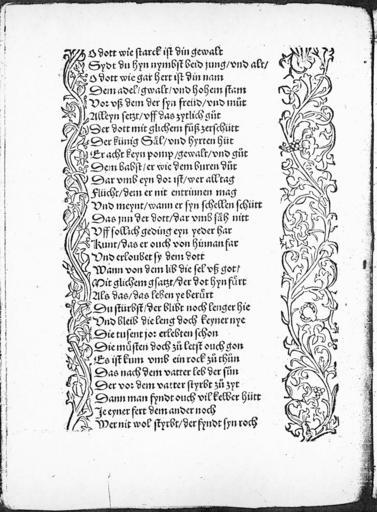 O dott wie starck ist din gewalt
Sydt du hyn nymbst beid jung/vnd alt/
O dott wie gar hert ist din nam
Dem adel/gwalt/vnd hohem stam
Vor vß dem der syn freüd/vnd mût
Alleyn setzt/vff das zytlich gût
Der dott mit glichem fûß zerschütt
Der künig Säl/vnd hyrten hütt
Er acht keyn pomp/gewalt/vnd gût
Dem babst/er wie dem buren dût
Dar vmb eyn dor ist/wer all tag
Flücht/dem er nit entrinnen mag
Vnd meynt/wann er syn schellen schütt
Das jnn der dott/dar vmb säh nitt
Vff sollich geding eyn yeder har
Kunt/das er ouch von hinnan far
Vnd erloubet sy dem dott
Wann von dem lib die sel vß got/
Mit glichem gsatzt/der dot hyn fürt
Als das/das leben ye berürt
Du stürbst/der blibt noch lenger hie
Vnd bleib die leng doch keyner nye
Die tusent jor erlebten schon
Die müsten doch zû letst ouch gon
Es ist kum vmb ein rock zû thûn
Das nach dem vatter leb der sûn
Der vor dem vatter styrbt zû zyt
Dann man fyndt ouch vil kelber hütt
Je eyner fert dem ander noch
Wer nit wol styrbt/der fyndt syn roch